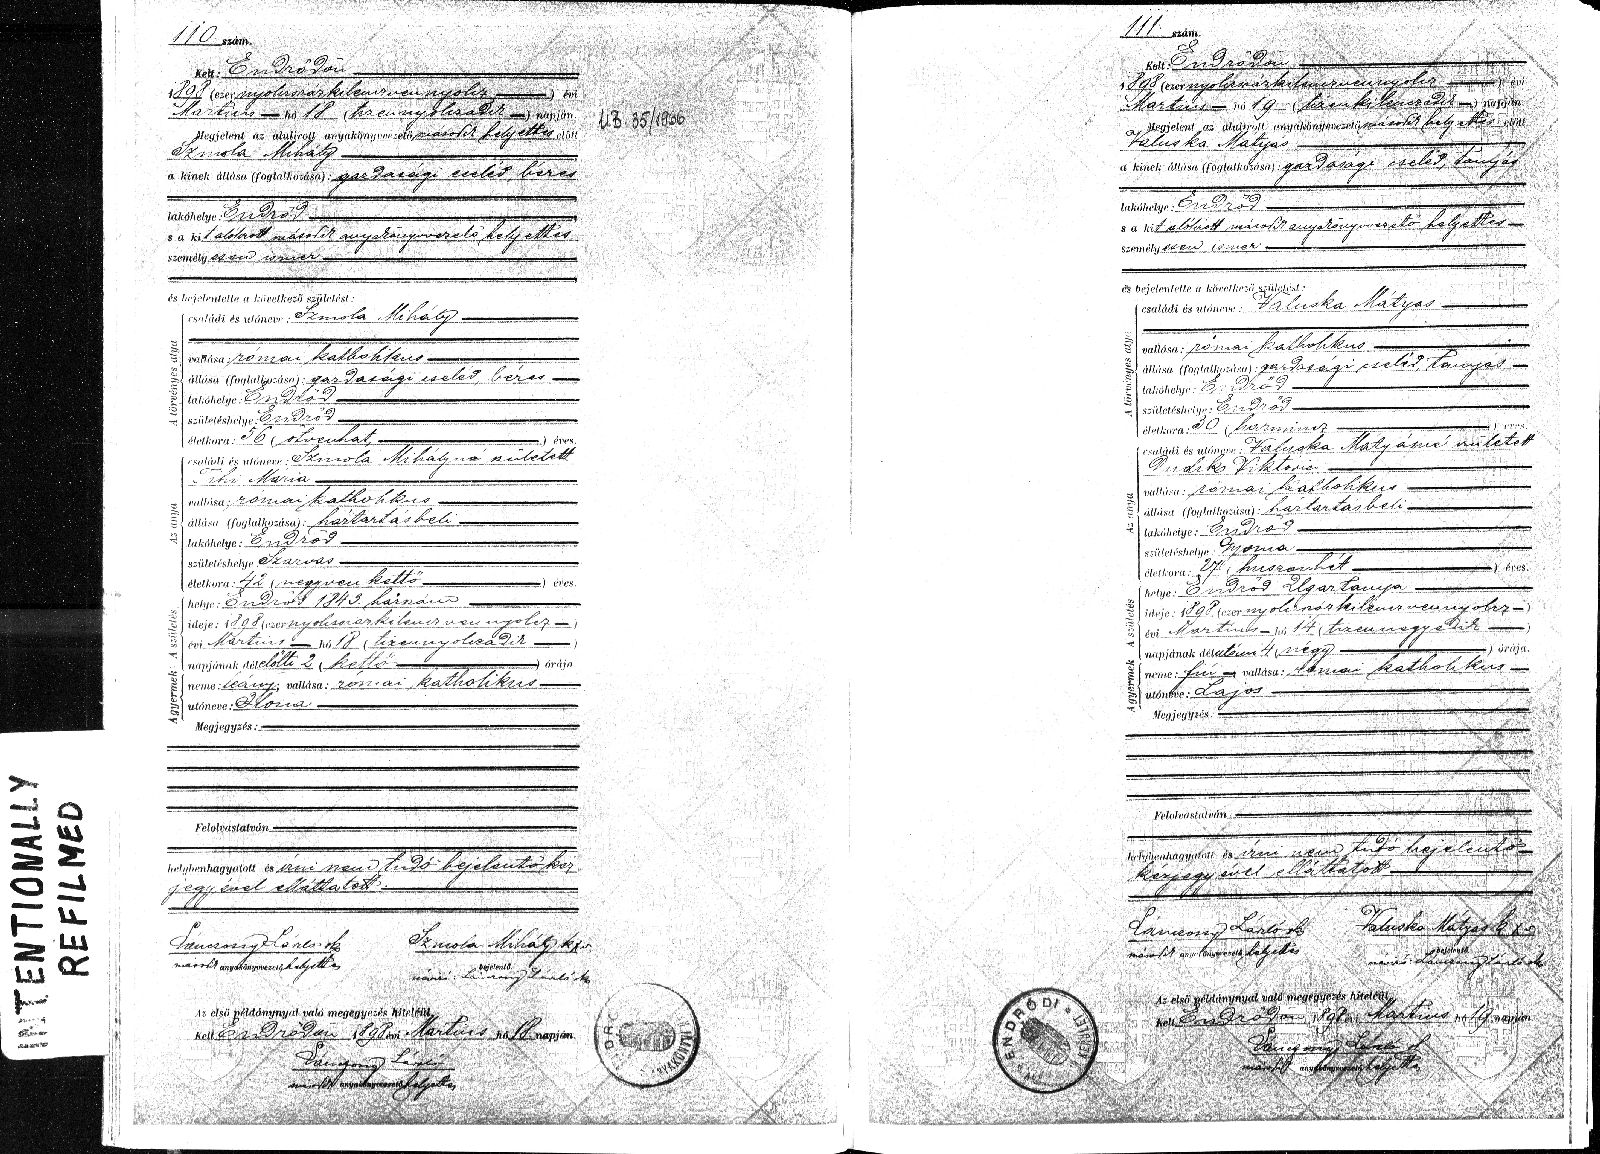 110 szám.
Kelt: Endrődön
1898 (ezernyolcszázkilenczvennyolcz) évi
Martius hó 18 (tizennyolczadik) napján.
Megjelent az alulirott anyakönyvvezető második helyettes előtt
Szmola Mihály
a kinek állása (foglalkozása): gazdasági cseléd, béres
lakóhelye: Endrőd
s a kit alólirott második anyakönyvvezető helyettes
személyesen ismer
és bejelentette a következő születést:
A törvényes atya
családi és utóneve: Szmola Mihály
vallása: római katholikus
állása (foglalkozása): gazdasági cseléd, béres
lakóhelye: Endrőd
születéshelye: Endrőd
életkora: 56 (ötvenhat) éves.
Az anya
családi és utóneve: Szmola Mihályné született
Mária
vallása: római katholikus
állása (foglalkozása): háztartásbeli
lakóhelye: Endrőd
születéshelye: Szarvas
életkora: 42 (negyvenkettő) éves.
A gyermek: A születés
helye: Endrőd 1843. házszám
ideje: 1898 (ezernyolcszázkilenczvennyolcz)
évi Martius hó 18 (tizennyolczadik)
napjának délelőtti 2 (kettő) órája
neme: leány, vallása: római katholikus
utóneve: Ilona
Megjegyzés:
Felolvastatván
helybenhagyatott és irni nem tudó bejelentő kéz
jegyével elláttatott.
Szmola Mihály kxv.
második anyakönyvvezető helyettes
bejelentő.
Az első példánynyal való megegyezés hiteléül
Kelt Endrődön, 1898 évi Martius hó 18 napján.
második anyakönyvvezető helyettes
UB 35/1936
111 szám.
Kelt: Endrődön
1898 (ezernyolcszázkilenczvennyolcz) évi
Martius hó 19 (tizenkilenczedik) napján.
Megjelent az alulirott anyakönyvvezető második helyettes előtt
Valuska Mátyás
a kinek állása (foglalkozása): gazdasági cseléd, tanyás
lakóhelye: Endrőd
s a kit alólirott második anyakönyvvezető helyettes
személyesen ismer
és bejelentette a következő születést:
A törvényes atya
családi és utóneve: Valuska Mátyás
vallása: római katholikus
állása (foglalkozása): gazdasági cseléd, tanyás
lakóhelye: Endrőd
születéshelye: Endrőd
életkora: 30 (harmincz) éves.
Az anya
családi és utóneve: Valuska Mátyásné született
Viktoria
vallása: római katholikus
állása (foglalkozása): háztartásbeli
lakóhelye: Endrőd
születéshelye: Gyoma
életkora: 27 (huszonhét) éves.
A gyermek: A születés
helye: Endrőd Ugartanya
ideje: 1898 (ezernyolcszázkilenczvennyolcz)
évi Martius hó 14 (tizennegyedik)
napjának délutáni 4 (négy) órája.
neme: fiú, vallása: római katholikus
utóneve: Lajos
Megjegyzés.
Felolvastatván.
helybenhagyatott és irni nem tudó bejelentő
kézjegyével elláttatott
Valuska Mátyás kxv
második anyakönyvvezető helyettes
bejelentő.
Az első példánynyal való megegyezés hiteléül
Kelt Endrődön, 1898 évi Martius hó 19 napján
második anyakönyvvezető helyettes
ENDRŐDI
INTENTIONALLY
REFILMED